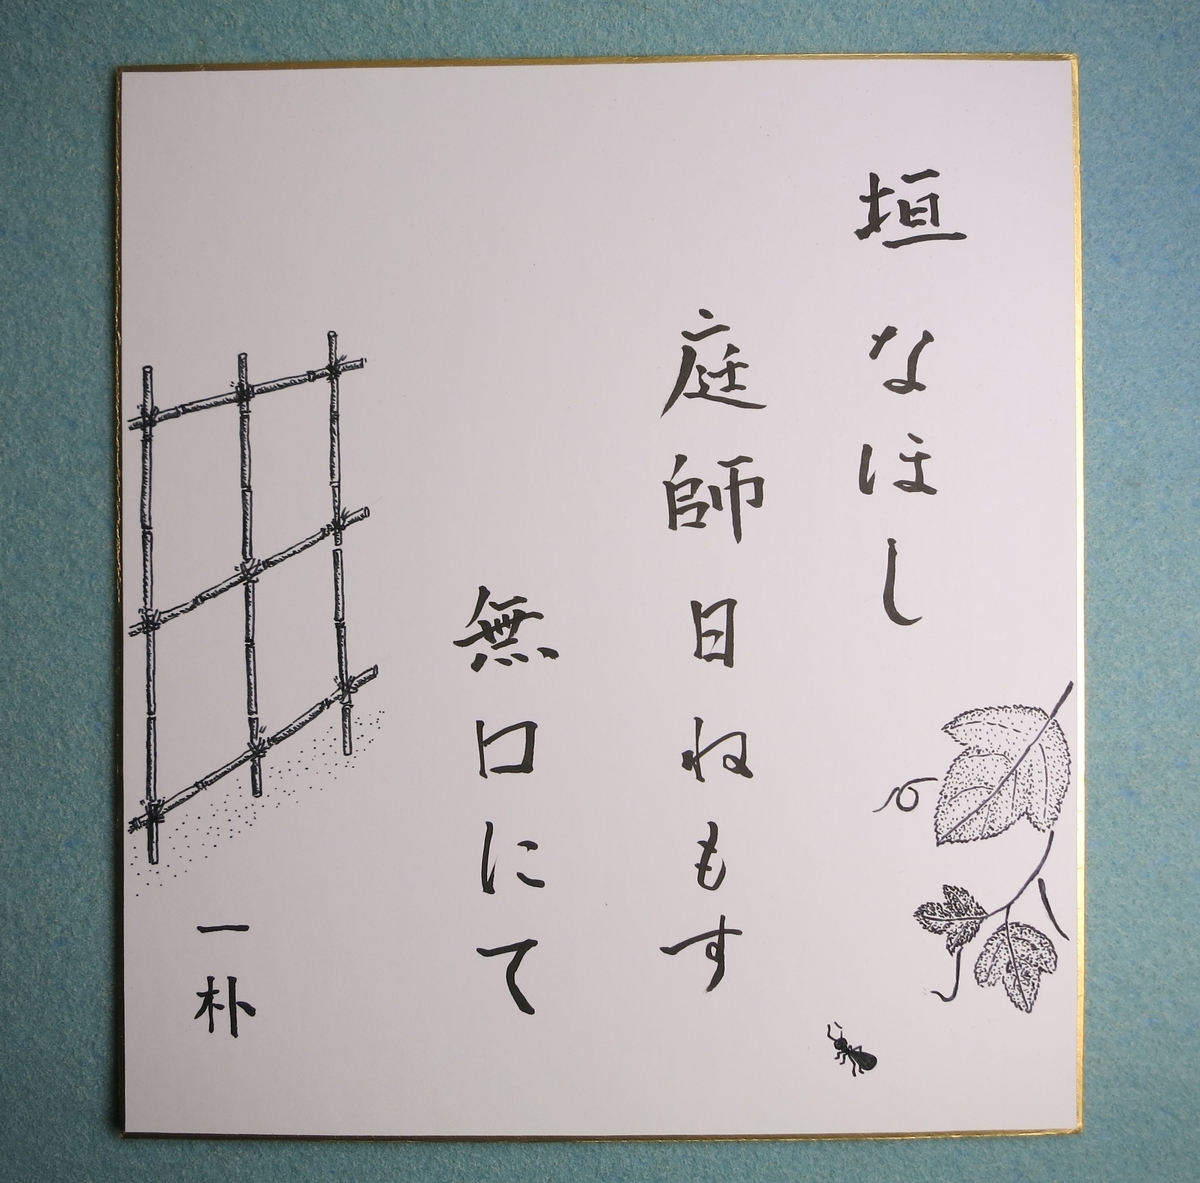 垣なほし
庭師日ねもす
無口にて
一朴